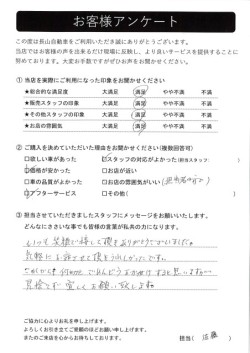 お客様アンケート
この度は長山自動車をご利用いただき誠にありがとうございます。
当店ではお客様の声を出来るだけ現場に反映し、より良いサービスを提供することに
努めております。大変お手数ですがぜひお声をお聞かせください。
① 当店を実際にご利用になった印象をお聞かせください
★総合的な満足度 大満足 満足 やや不満 不満
★販売スタッフの印象 大満足 満足 やや不満 不満
★その他スタッフの印象 大満足 満足 やや不満 不満
★お店の雰囲気 大満足 満足 やや不満 不満
② ご購入を決めていただいた理由をお聞かせください(複数回答可)
□欲しい車があった □スタッフの対応がよかった(担当スタッフ:
□価格が安かった □お店が近い
□車の品質がよかった □お店の雰囲気がいい
□アフターサービス □その他(
③ 担当させていただきましたスタッフにメッセージをお願いいたします。
どんなにささいな事でも皆様の言葉が私共の力になります。
いつも笑顔で接して頂きありがとうございました。
ご協力に心よりお礼を申し上げます。
よろしくお引立てご愛顧のほどお願い申し上げます。
またのご来店を心からお待ちしております。 担当( 佐藤 )